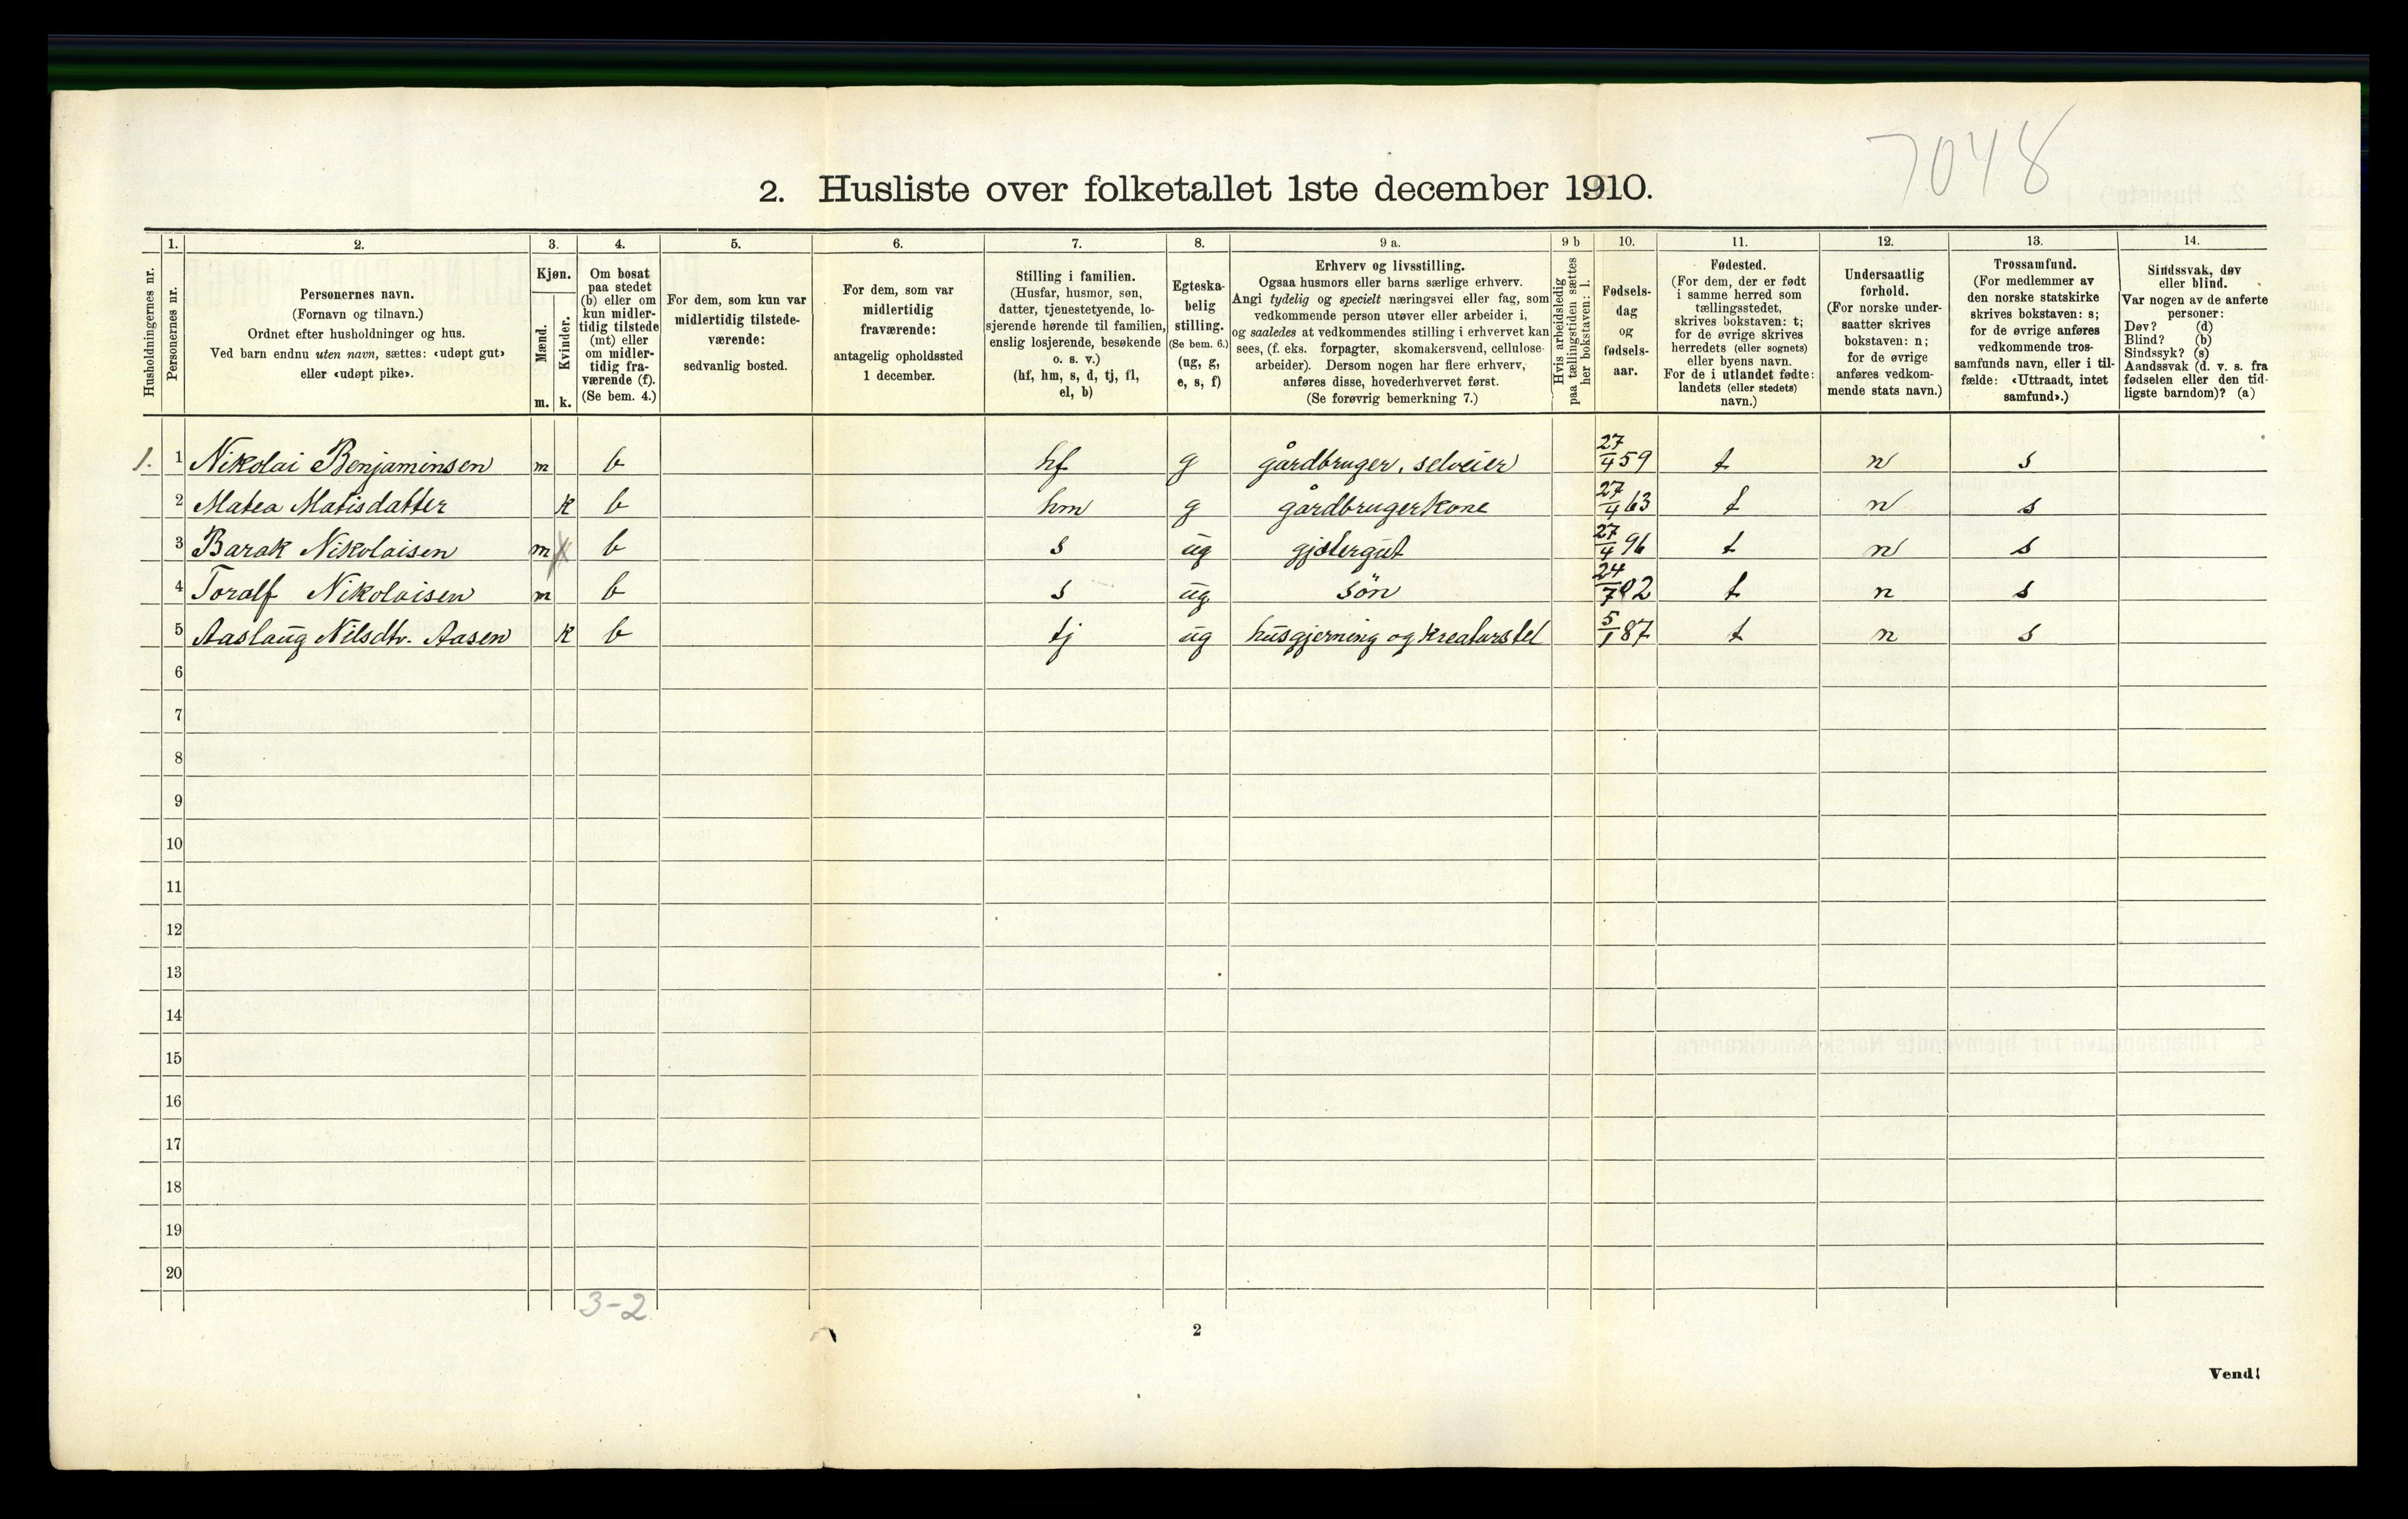 7048
2. Husliste over folketallet 1ste december 1910.
1. 2. 3. 4. 5. 6. 7. 8. 9 a. 9 b 10. 11. 12. 13. 14.
Husholdningernes nr.
Personernes nr.
Personernes navn.
(Fornavn og tilnavn.)
Ordnet efter husholdninger og hus.
Ved barn endnu uten navn, sættes: «udøpt gut»
eller «udøpt pike».
Kjøn.
Mænd.
Kvinder.
m. k.
Om bosat
paa stedet
(b) eller om
kun midler-
tidig tilstede
(mt) eller
om midler-
tidig fra-
værende (f).
(Se bem. 4.)
For dem, som kun var
midlertidig tilstede-
værende:
sedvanlig bosted.
For dem, som var
midlertidig
fraværende:
antagelig opholdssted
1 december.
Stilling i familien.
(Husfar, husmor, søn,
datter, tjenestetyende, lo-
sjerende hørende til familien,
enslig losjerende, besøkende
o. s. v.)
(hf, hm, s, d, tj, fl,
el, b)
Egteska-
belig
stilling.
(Se bem. 6.)
(ug, g,
e, s, f)
Erhverv og livsstilling.
Ogsaa husmors eller barns særlige erhverv.
Angi tydelig og specielt næringsvei eller fag, som
vedkommende person utøver eller arbeider i,
og saaledes at vedkommendes stilling i erhvervet kan
sees, (f. eks. forpagter, skomakersvend, cellulose-
arbeider). Dersom nogen har flere erhverv,
anføres disse, hovederhvervet først.
(Se forøvrig bemerkning 7.)
Hvis arbeidsledig
paa tællingstiden sættes
her bokstaven: l.
Fødsels-
dag
og
fødsels-
aar.
Fødested.
(For dem, der er født
i samme herred som
tællingsstedet,
skrives bokstaven: t;
for de øvrige skrives
herredets (eller sognets)
eller byens navn.
For de i utlandet fødte:
landets (eller stedets)
navn.)
Undersaatlig
forhold.
(For norske under-
saatter skrives
bokstaven: n;
for de øvrige
anføres vedkom-
mende stats navn.)
Trossamfund.
(For medlemmer av
den norske statskirke
skrives bokstaven: s;
for de øvrige anføres
vedkommende tros-
samfunds navn, eller i til-
fælde: «Uttraadt, intet
samfund».)
Sindssvak, døv
eller blind.
Var nogen av de anførte
personer:
Døv? (d)
Blind? (b)
Sindssyk? (s)
Aandssvak (d. v. s. fra
fødselen eller den tid-
ligste barndom)? (a)
1. 1 Nikolai Benjaminsen m b hf g gårdbruger, selveier 27/4 59 t n s
2 Matea Matisdatter k b hm g gårdbrugerkone 27/4 63 t n s
3 Barak Nikolaisen m b s ug gjætergut 27/4 96 t n s
4 Toralf Nikolaisen m b s ug sön 24/7 02 t n s
5 Aaslaug Nilsdtr. Aasen k b tj ug husgjerning og kreaturstel 5/1 87 t n s
6
7
8
9
10
11
12
13
14
15
16
17
18
19
20
3-2
2
Vend!